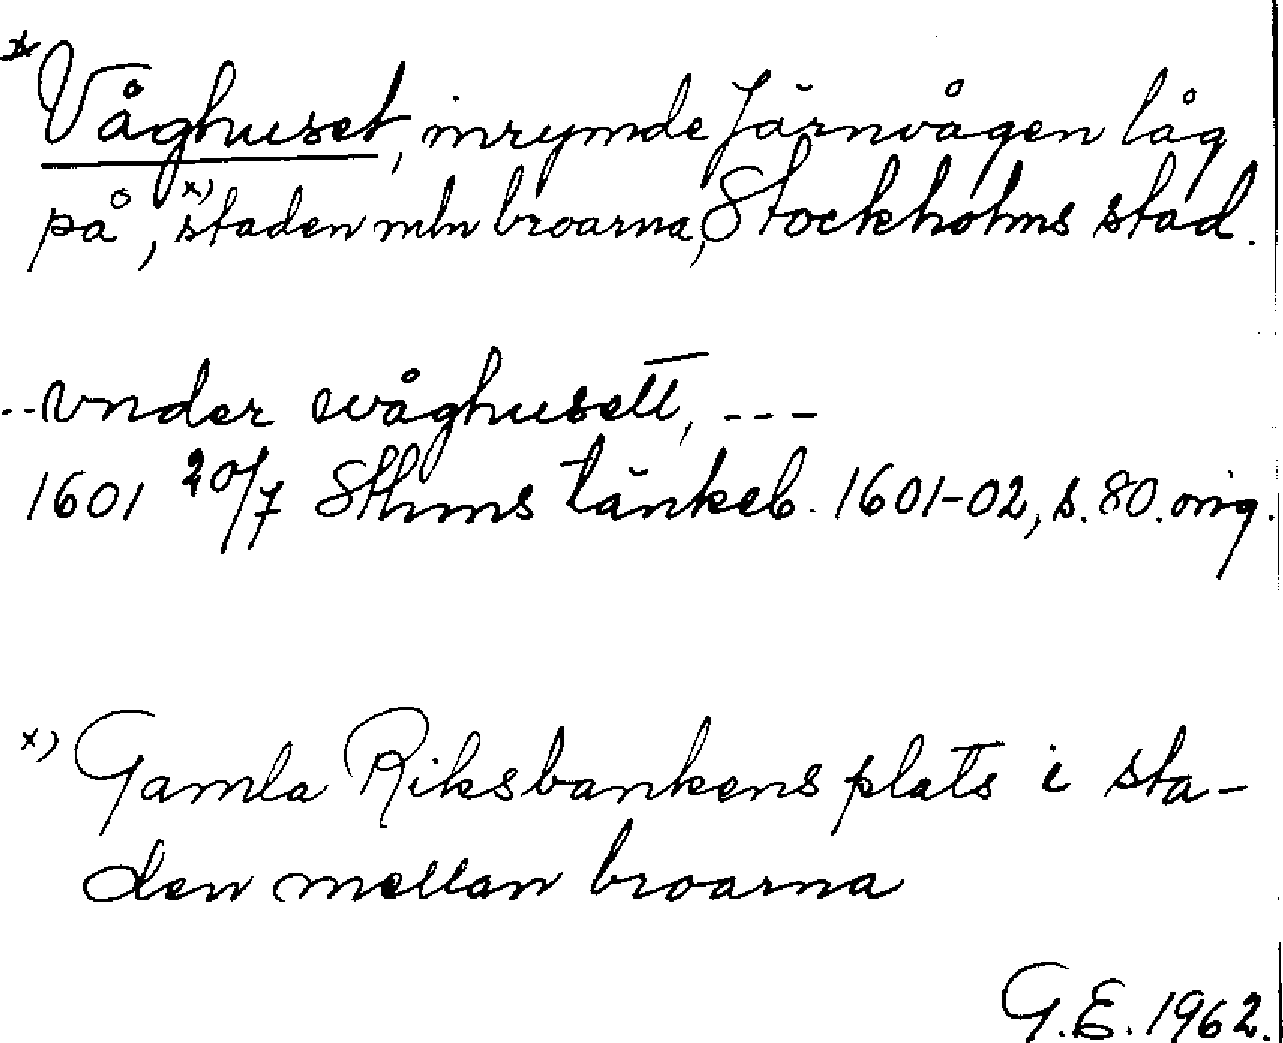 * Våghuset, inrymde Järnvågen låg
på, x) staden mln broarna, Stockholms stad.
.. vnder wåghusett, ---
1601 20/7 Sthms tänkeb. 1601-02, s. 80. orig.
x) Gamla Riksbankens plats i sta-
den mellan broarna
G.E. 1962.